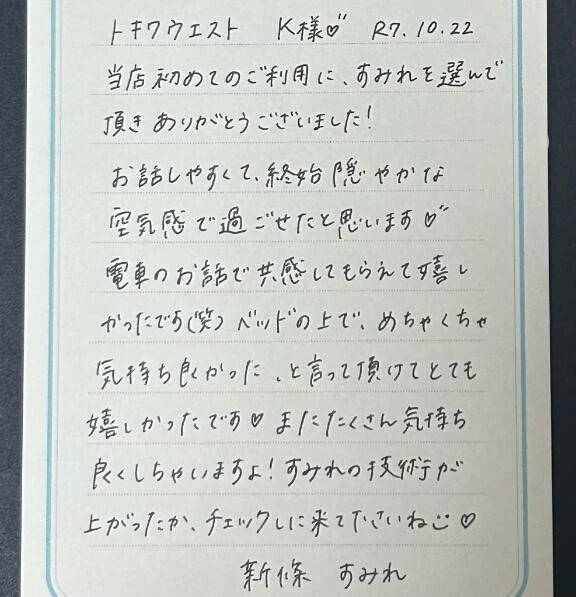 トキワウエスト K様♡" R7.10.22
当店初めてのご利用に、すみれを選んで
頂きありがとうございました!
お話しやすくて、終始隠やかな
空気感で過ごせたと思います♡"
電車のお話で共感してもらえて嬉し
かったです(笑) ベッドの上で、めちゃくちゃ
気持ち良かった、と言って頂けてとても
嬉しかったです♡ またたくさん気持ち
良くしちゃいますよ!すみれの技術が
上がったか、チェックしに来て下さいね☺♡
新條 すみれ